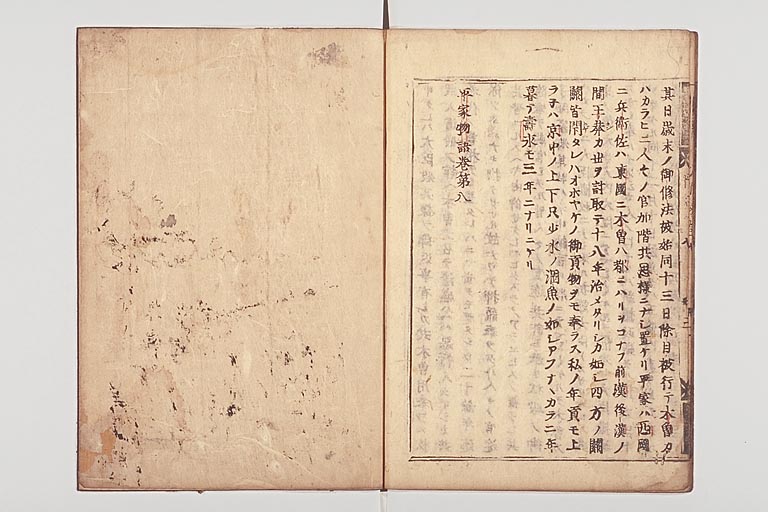 其日歳末ノ御修法被始同十三日除目被行テ木曽カ
ハカラヒニ人々ノ官加階共思様ニナシ置ケリ平家ハ西國
ニ兵衛佐ハ東國ニ木曽ハ都ニハリヲコナフ前漢後漢ノ
間王莽カ世ヲ討取テ十八年治メタリシカ如シ四方ノ關
關皆閇タレハオホヤケノ御貢物ヲモ奉ラス私ノ年貢モ上
ラヲハ京中ノ上下只少水ノ漁ノ如シアフナナカラニ年
暮テ壽永モ三年ニナリニケリ
平家物語巻第八